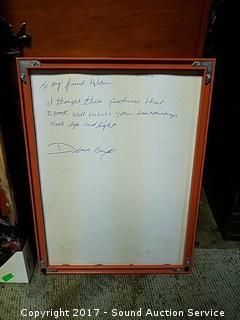 To my friend Adam
I thought these pictures that
I took will enhabit your surroundings
with life and light
Copyright 2017 - Sound Auction Service